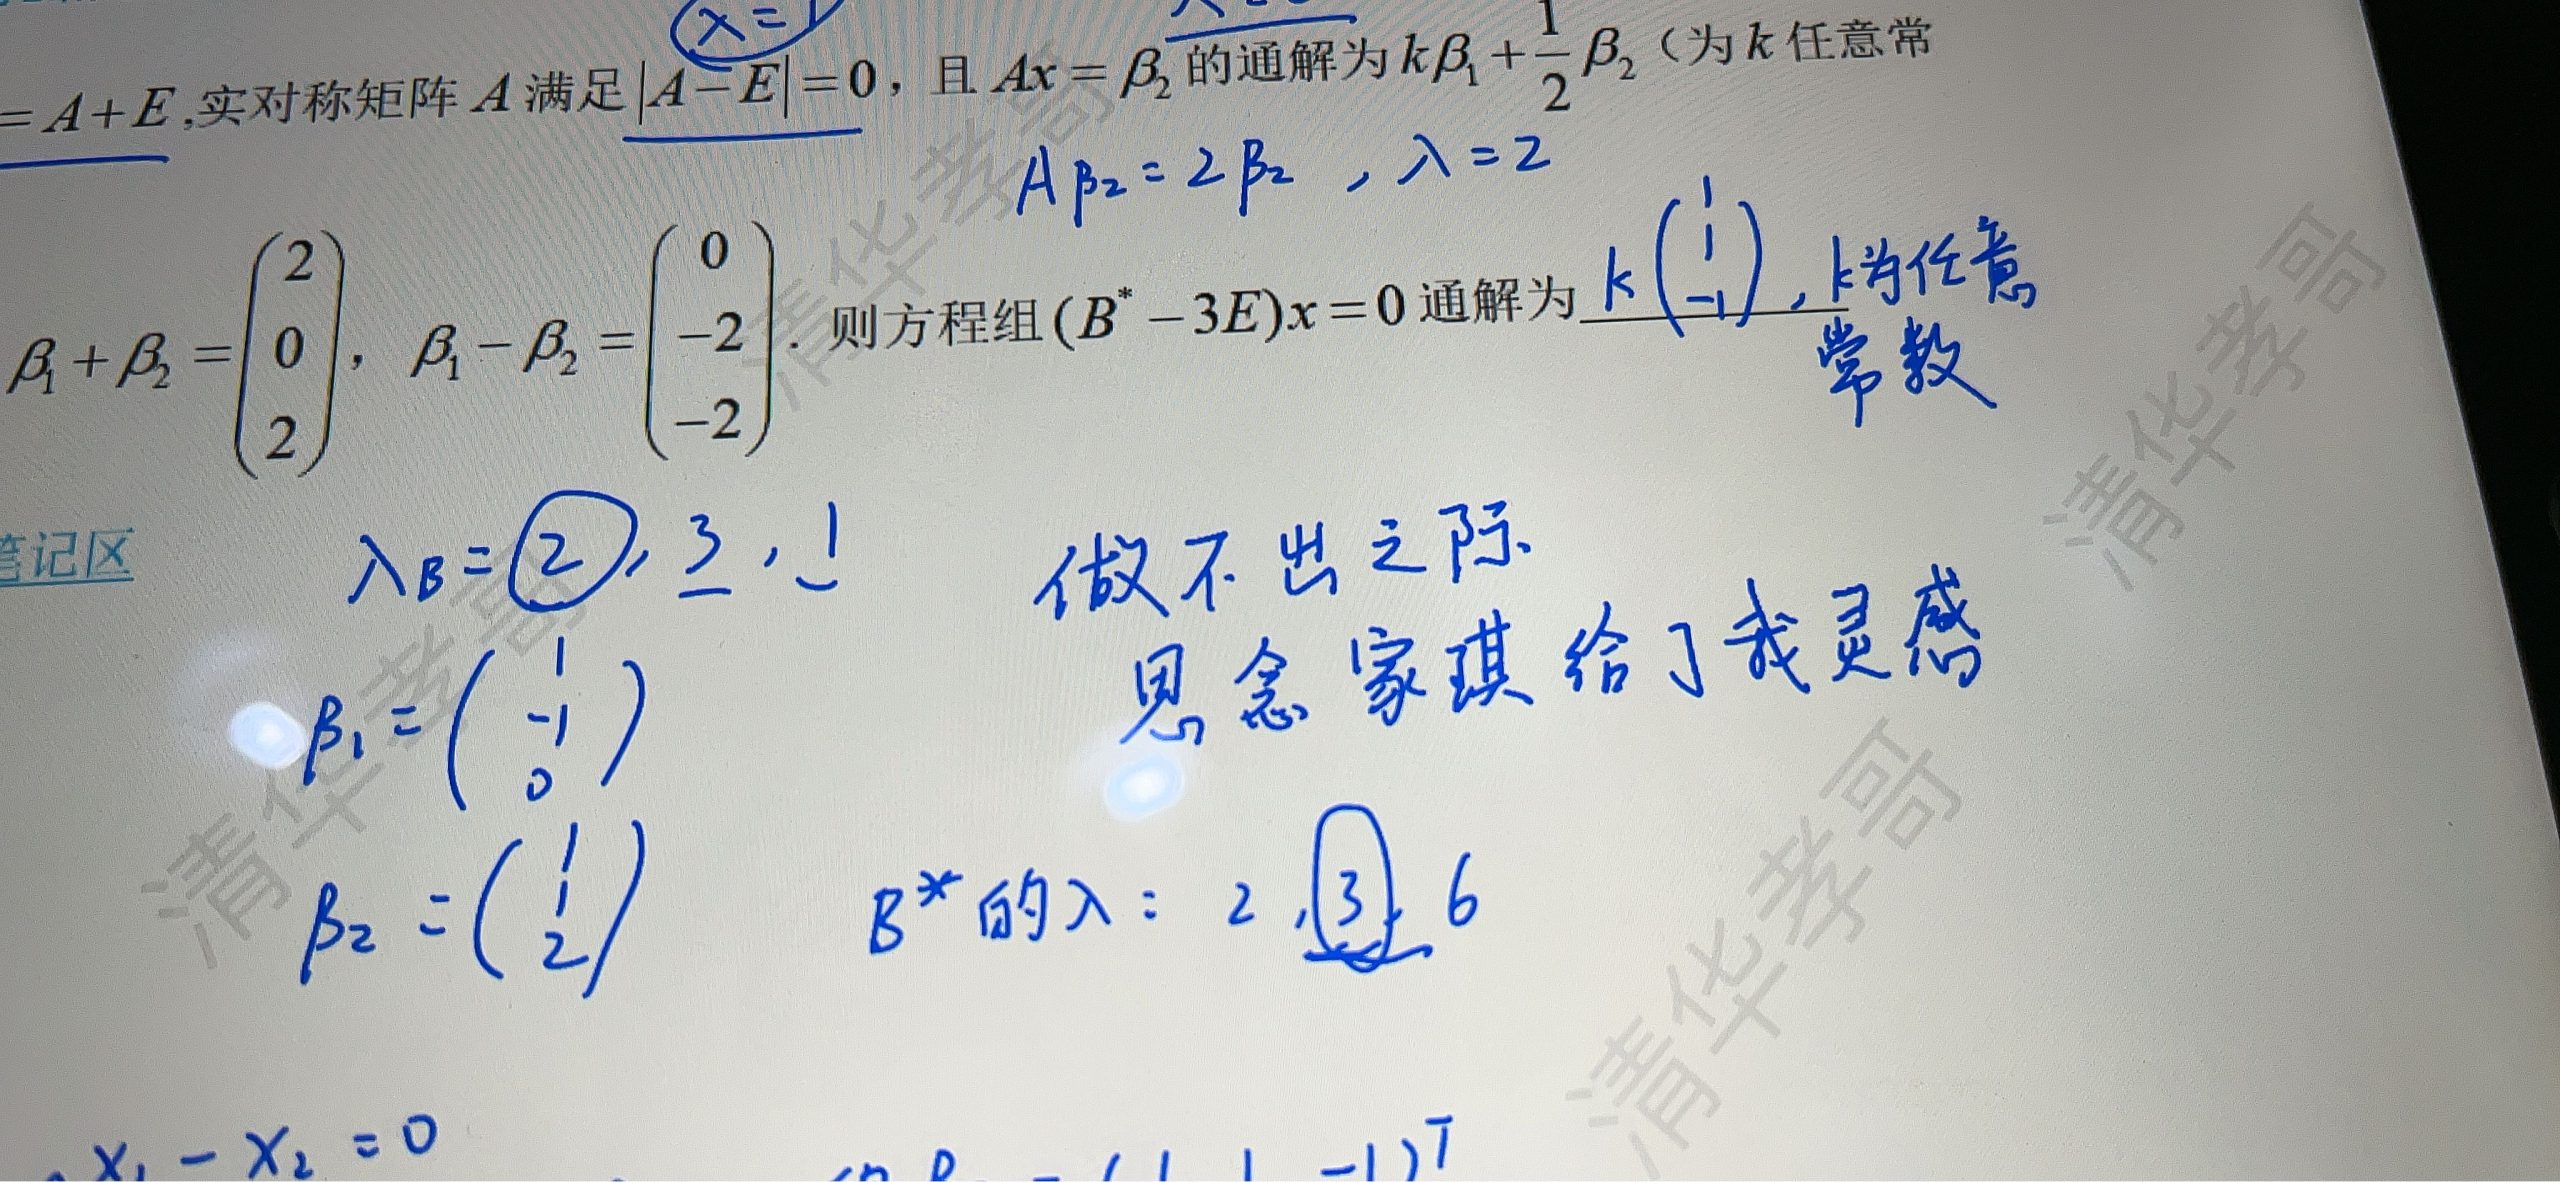 λ=1
= A+E ,实对称矩阵 A 满足 |A−E|=0，且 Ax = β₂ 的通解为 kβ₁ + 1/2 β₂（为 k 任意常
Aβ₂ = 2β₂ , λ=2
β₁ + β₂ = (2 0 2)， β₁ − β₂ = (0 −2 −2). 则方程组 (B* − 3E)x = 0 通解为 k(1 1 −1), k为任意
常数
笔记区
λB = 2, 3, 1
做不出之际
思念家琪给了我灵感
β₁ = (1 −1 0)
β₂ = (1 1 2)
B* 的 λ: 2, 3, 6
x₁ − x₂ = 0
= (1 1 −1)ᵀ
清华孝哥
清华孝哥
清华孝哥
清华孝哥